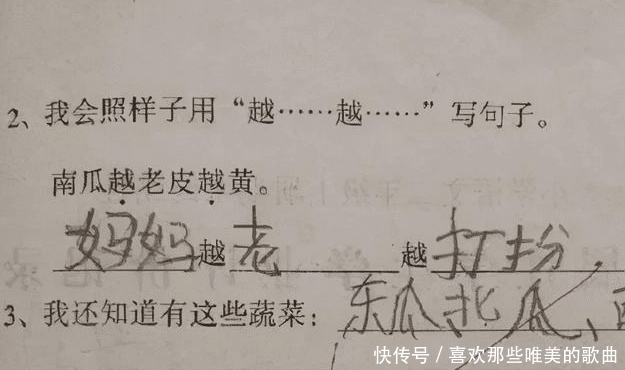 2、我会照样子用“越……越……”写句子。
南瓜越老皮越黄。
妈妈越老越打扮。
3、我还知道有这些蔬菜：东瓜、北瓜、
快传号／喜欢那些唯美的歌曲